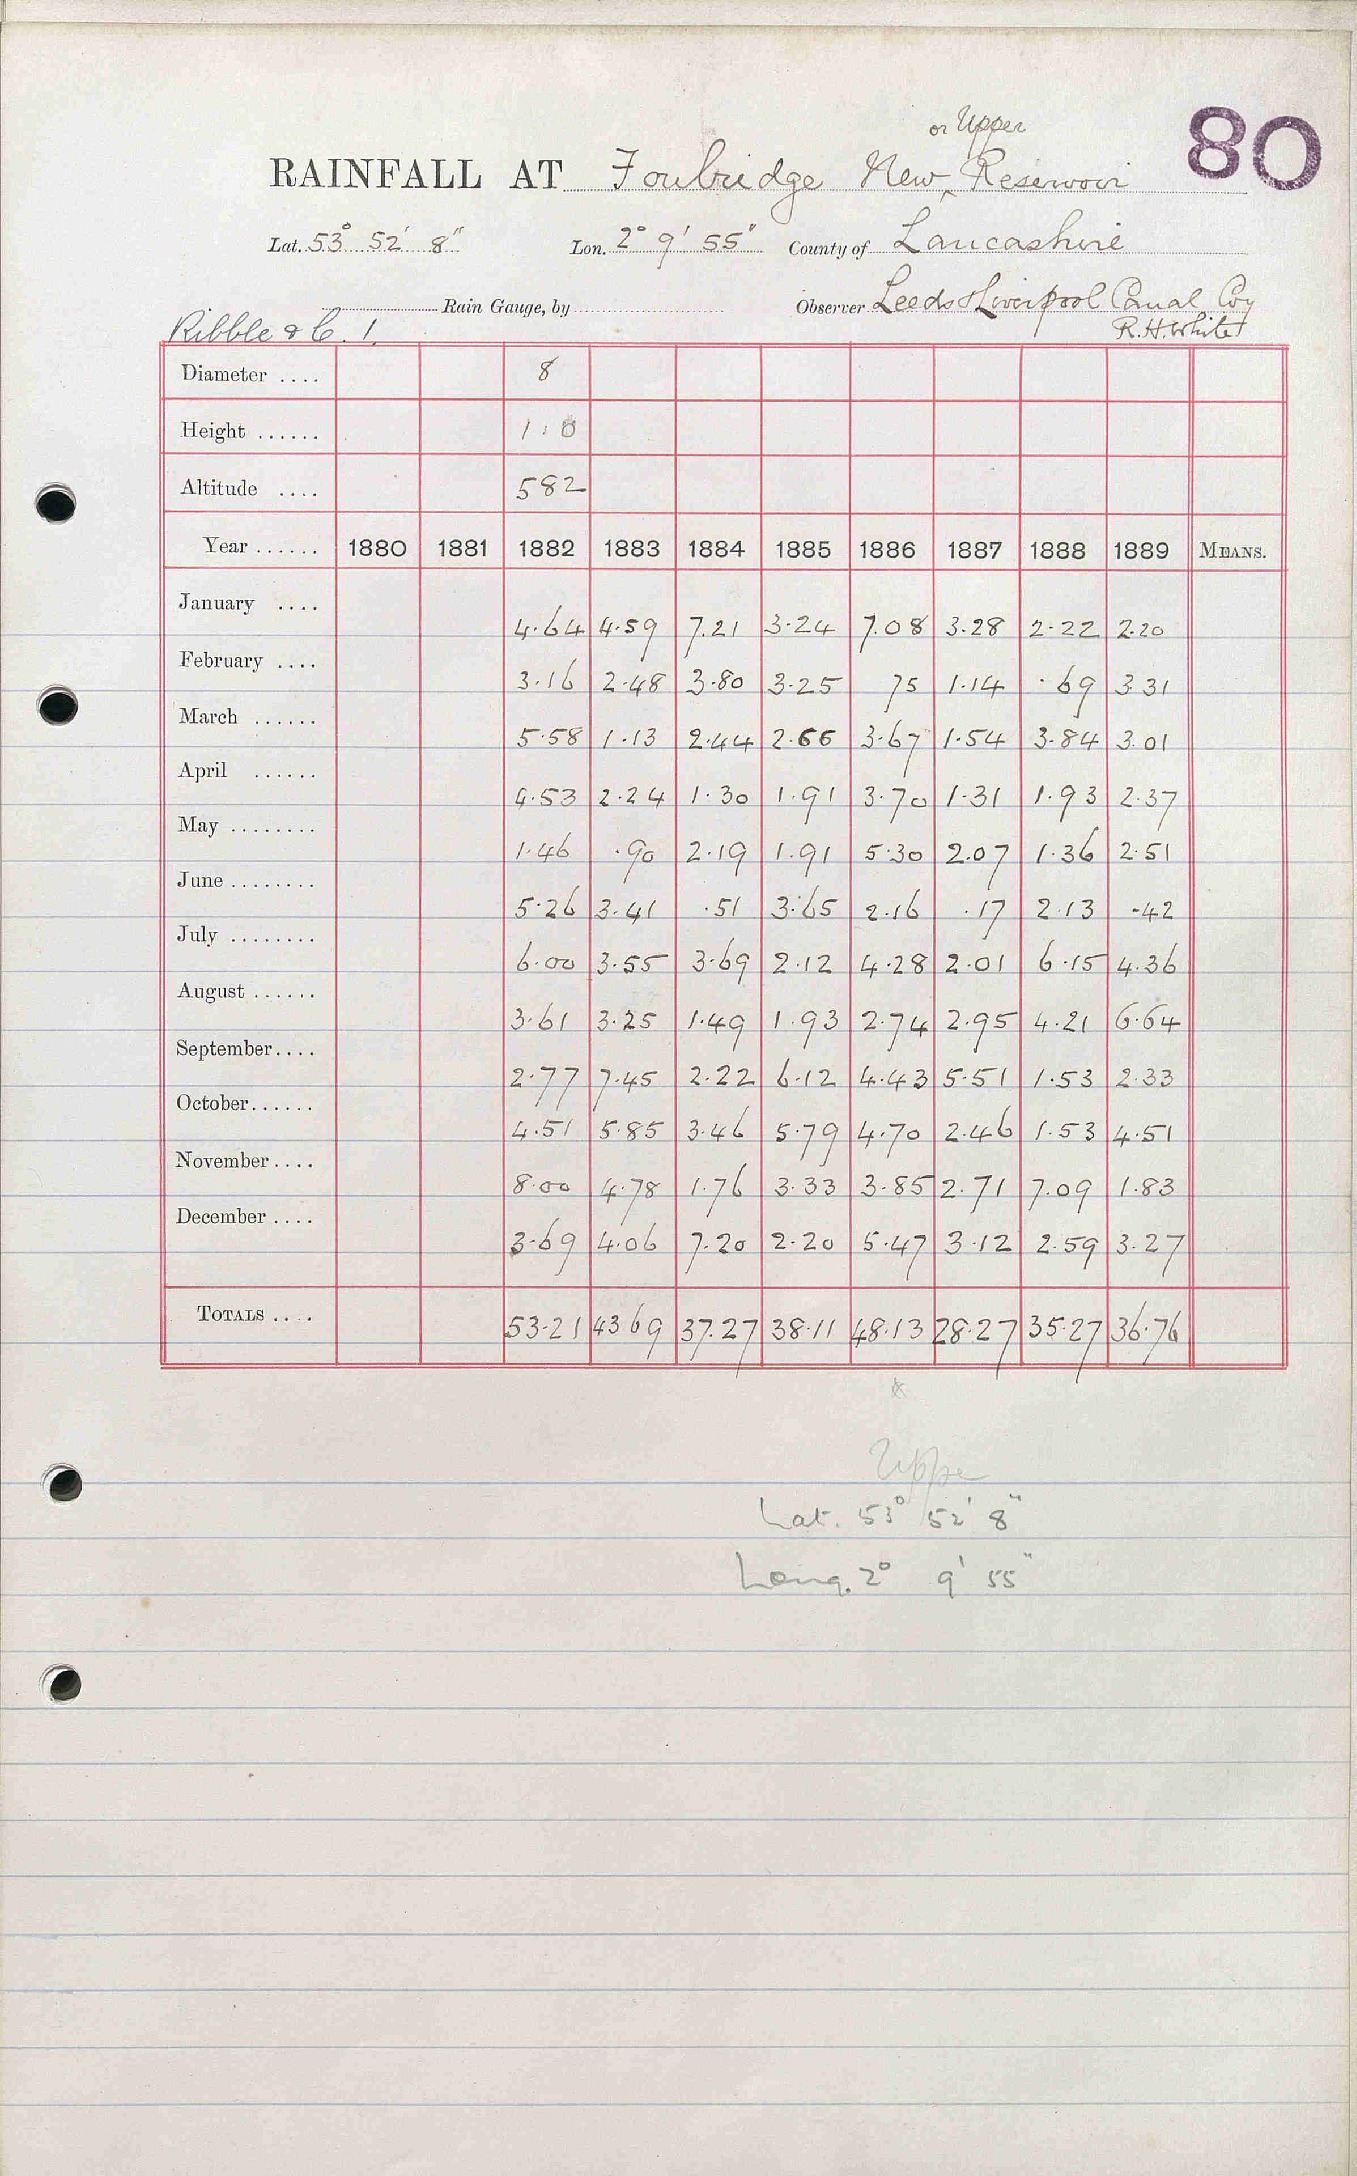 80
or Upper
RAINFALL AT Foulridge New Reservoir
Lat. 53° 52' 8" Lon. 2° 9' 55" County of Lancashire
Rain Gauge, by Observer Leeds & Liverpool Canal Coy
Ribble & C. 1. R. H. White
Diameter .... 8
Height ...... 1.0
Altitude .... 582
Year ...... 1880 1881 1882 1883 1884 1885 1886 1887 1888 1889 MEANS.
January .... 4.64 4.59 7.21 3.24 7.08 3.28 2.22 2.20
February .... 3.16 2.48 3.80 3.25 75 1.14 .69 3.31
March ...... 5.58 1.13 2.44 2.66 3.67 1.54 3.84 3.01
April ...... 4.53 2.24 1.30 1.91 3.70 1.31 1.93 2.37
May ........ 1.46 .90 2.19 1.91 5.30 2.07 1.36 2.51
June ........ 5.26 3.41 .51 3.65 2.16 .17 2.13 .42
July ........ 6.00 3.55 3.69 2.12 4.28 2.01 6.15 4.36
August ...... 3.61 3.25 1.49 1.93 2.74 2.95 4.21 6.64
September .... 2.77 7.45 2.22 6.12 4.43 5.51 1.53 2.33
October ...... 4.51 5.85 3.46 5.79 4.70 2.46 1.53 4.51
November .... 8.00 4.78 1.76 3.33 3.85 2.71 7.09 1.83
December .... 3.69 4.06 7.20 2.20 5.47 3.12 2.59 3.27
TOTALS .... 53.21 43 69 37.27 38.11 48.13 28.27 35.27 36.76
Upper
Lat. 53° 52' 8"
Long. 2° 9' 55"